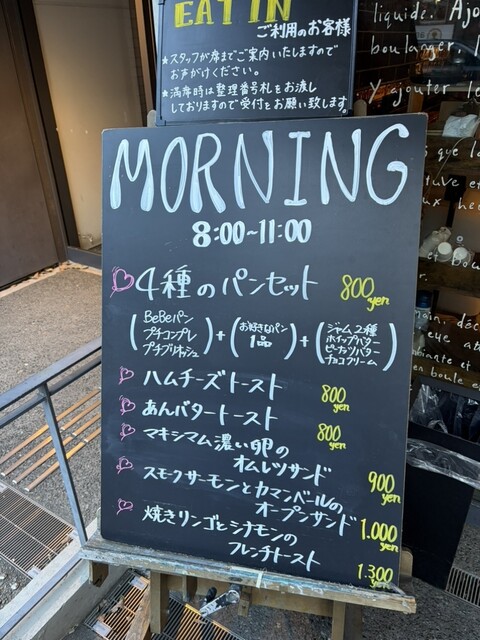 EAT IN
ご利用のお客様
★スタッフが席までご案内いたしますので
お声がけください。
★満席時は整理番号札をお渡し
しておりますので受付をお願い致します。
MORNING
8:00~11:00
4種のパンセット 800yen
(BeBeパン
プチコンプレ
プチブリオッシュ)
+
(お好きなパン
1品)
+
(ジャム2種
ホイップバター
ピーナッツバター
チョコクリーム)
ハムチーズトースト 800yen
あんバタートースト 800yen
マキシマム濃い卵の
オムレツサンド 900yen
スモークサーモンとカマンベールの
オープンサンド 1.000yen
焼きリンゴとシナモンの
フレンチトースト 1.300yen
liquide. Ajo
boulanger, l
Y ajouter le